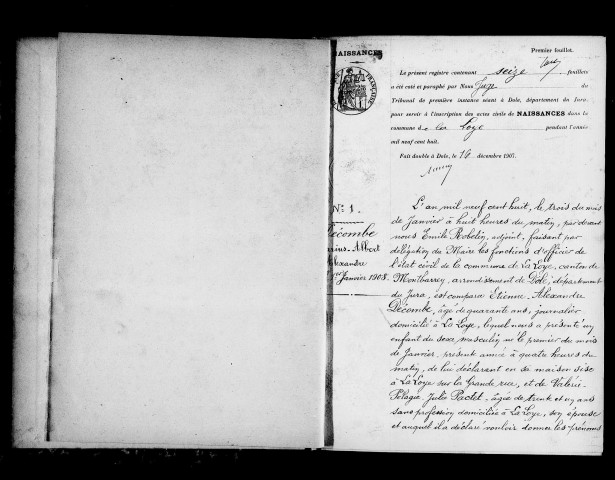 Premier feuillet.
NAISSANCES
Le présent registre contenant seize feuillets
a été coté et paraphé par Nous Juge du
Tribunal de première instance séant à Dole, département du Jura,
pour servir à l'inscription des actes civils de NAISSANCES dans la
commune de La Loye pendant l'année
mil neuf cent huit.
Fait double à Dole, le 14 décembre 1907.
N° 1.
Décombe
Marius-Albert
Alexandre
1er Janvier 1908.
L'an mil neuf cent huit, le trois du mois
de Janvier à huit heures du matin, par devant
nous Emile Robelin, adjoint, faisant par
délégation du Maire les fonctions d'officier de
l'état civil de la commune de La Loye, canton de
Montbarrey, arrondissement de Dole, département
du Jura, est comparu Etienne Alexandre
Décombe, âgé de quarante ans, journalier
domicilié à La Loye, lequel nous a présenté un
enfant du sexe masculin, né le premier du mois
de Janvier, présente année à quatre heures du
matin, de lui déclarant en sa maison sise
à La Loye sur la Grande rue, et de Valérie
Pélagie Julie Paclet âgée de trente et un ans
sans profession, domiciliée à La Loye, son épouse
et auquel il a déclaré vouloir donner les prénoms